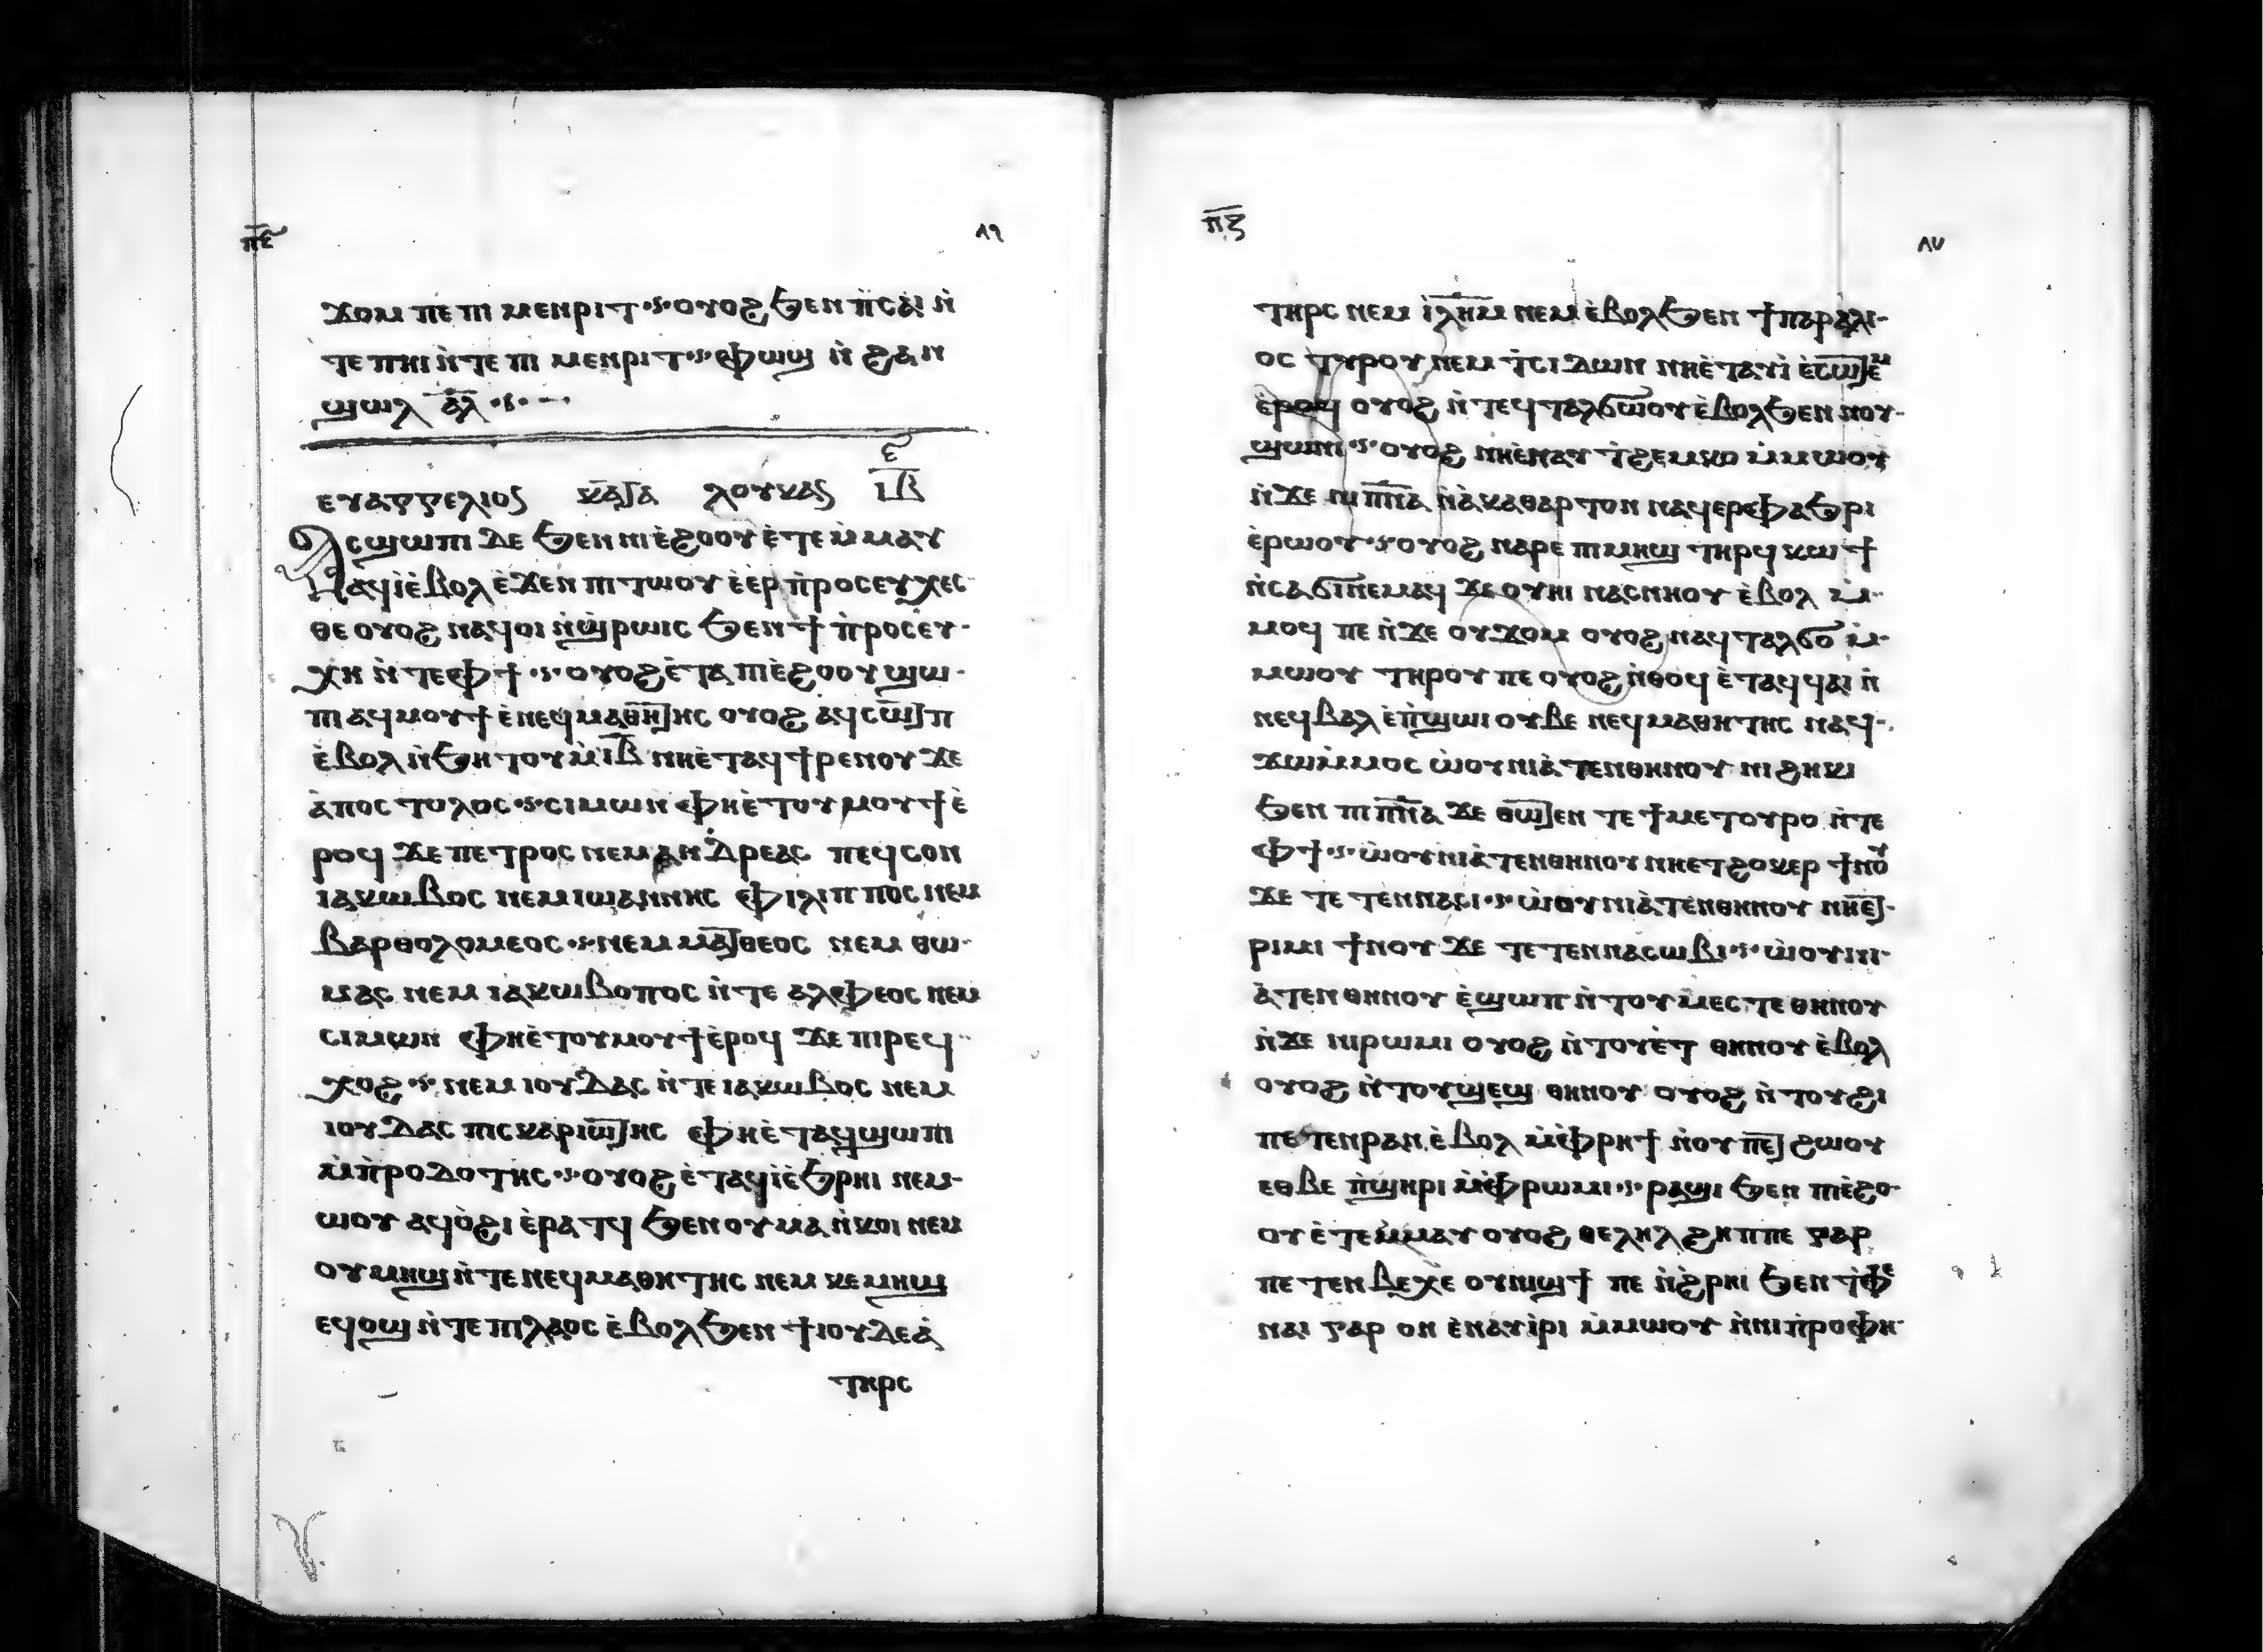 ⲡ︦ⲉ︦
ϫⲟⲙ ⲡⲉ ⲡⲓ ⲙⲉⲛⲣⲓⲧ ⲟⲩⲟϩ ϧⲉⲛ ⲡ̀ⲥⲁⲓ ⲛ̀
ⲧⲉ ⲡⲏⲓ ⲛ̀ⲧⲉ ⲡⲓ ⲙⲉⲛⲣⲓⲧ ⲫⲱϣ ⲛ̀ ϩⲁⲛ
ϣⲱⲗ ⲁ︦ⲗ︦
ⲉⲩⲁⲅⲅⲉⲗⲓⲟⲥ ⲕⲁⲧⲁ ⲗⲟⲩⲕⲁⲥ ⲓ︦ⲃ︦ ⲉ
ⲁⲥϣⲱⲡⲓ ⲇⲉ ϧⲉⲛ ⲛⲓⲉ̀ϩⲟⲟⲩ ⲉ̀ⲧⲉⲙ̀ⲙⲁⲩ
ⲁϥⲓ̀ⲉ̀ⲃⲟⲗ ⲉ̀ϫⲉⲛ ⲡⲓ ⲧⲱⲟⲩ ⲉ̀ⲉⲣ ⲡ̀ⲣⲟⲥⲉⲩⲭⲉⲥ
ⲑⲉ ⲟⲩⲟϩ ⲛⲁϥⲟⲓ ⲛ̀ϣ̀ⲣⲱⲓⲥ ϧⲉⲛ ϯ ⲡ̀ⲣⲟⲥⲉⲩ
ⲭⲏ ⲛ̀ⲧⲉⲫϯ ⲟⲩⲟϩ ⲉ̀ⲧⲁ ⲡⲓⲉ̀ϩⲟⲟⲩ ϣⲱ
ⲡⲓ ⲁϥⲙⲟⲩϯ ⲉ̀ⲛⲉϥⲙⲁⲑⲏⲧⲏⲥ ⲟⲩⲟϩ ⲁϥⲥⲱⲧⲡ
ⲉ̀ⲃⲟⲗ ⲛ̀ϧⲏⲧⲟⲩ ⲙ̀ⲓ︦ⲃ︦ ⲛⲏⲉ̀ⲧⲁϥϯⲣⲉⲛⲟⲩ ϫⲉ
ⲁ̀ⲡⲟⲥⲧⲟⲗⲟⲥ ⲥⲓⲙⲱⲛ ⲫⲏⲉ̀ⲧⲟⲩⲙⲟⲩϯ ⲉ̀
ⲣⲟϥ ϫⲉ ⲡⲉⲧⲣⲟⲥ ⲛⲉⲙ ⲁⲛⲇⲣⲉⲁⲥ ⲡⲉϥⲥⲟⲛ
ⲓⲁⲕⲱⲃⲟⲥ ⲛⲉⲙ ⲓⲱⲁⲛⲛⲏⲥ ⲫⲓⲗⲓⲡⲡⲟⲥ ⲛⲉⲙ
ⲃⲁⲣⲑⲟⲗⲟⲙⲉⲟⲥ ⲛⲉⲙ ⲙⲁⲧⲑⲉⲟⲥ ⲛⲉⲙ ⲑⲱ
ⲙⲁⲥ ⲛⲉⲙ ⲓⲁⲕⲱⲃⲟⲡⲟⲥ ⲛ̀ⲧⲉ ⲁⲗⲫⲉⲟⲥ ⲛⲉⲙ
ⲥⲓⲙⲱⲛ ⲫⲏⲉ̀ⲧⲟⲩⲙⲟⲩϯ ⲉ̀ⲣⲟϥ ϫⲉ ⲡⲓⲣⲉϥ
ⲭⲟϩ ⲛⲉⲙ ⲓⲟⲩⲇⲁⲥ ⲛ̀ⲧⲉ ⲓⲁⲕⲱⲃⲟⲥ ⲛⲉⲙ
ⲓⲟⲩⲇⲁⲥ ⲡⲓⲥⲕⲁⲣⲓⲱⲧⲏⲥ ⲫⲏⲉ̀ⲧⲁϥϣⲱⲡⲓ
ⲙ̀ⲡ̀ⲣⲟⲇⲟⲧⲏⲥ ⲟⲩⲟϩ ⲉ̀ⲧⲁϥⲓ̀ⲉ̀ϧⲣⲏⲓ ⲛⲉⲙ
ⲱⲟⲩ ⲁϥⲟ̀ϩⲓ ⲉ̀ⲣⲁⲧϥ ϧⲉⲛ ⲟⲩⲙⲁ ⲛ̀ⲕⲟⲓ ⲛⲉⲙ
ⲟⲩⲙⲏϣ ⲛ̀ⲧⲉ ⲛⲉϥⲙⲁⲑⲏⲧⲏⲥ ⲛⲉⲙ ⲕⲉⲙⲏϣ
ⲉϥⲟϣ ⲛ̀ⲧⲉ ⲡⲓⲗⲁⲟⲥ ⲉ̀ⲃⲟⲗ ϧⲉⲛ ϯⲓⲟⲩⲇⲉⲁ̀
ⲧⲏⲣⲥ
ⲡ︦ⲍ︦
ⲧⲏⲣⲥ ⲛⲉⲙ ⲓ︦ⲗ︦ⲏ︦ⲙ︦ ⲛⲉⲙ ⲉ̀ⲃⲟⲗ ϧⲉⲛ ϯⲡⲁⲣⲁⲗⲓ
ⲟⲥ ⲧⲩⲣⲟⲩ ⲛⲉⲙ ⲧ̀ⲥⲓⲇⲱⲛ ⲛⲏⲉ̀ⲧⲁⲩⲓ̀ ⲉ̀ⲥⲱⲧⲉⲙ
ⲉ̀ⲣⲟϥ ⲟⲩⲟϩ ⲛ̀ⲧⲉϥⲧⲁⲗϭⲱⲟⲩ ⲉ̀ⲃⲟⲗ ϧⲉⲛ ⲛⲟⲩ
ϣⲱⲛⲓ ⲟⲩⲟϩ ⲛⲏⲉ̀ⲛⲁⲩ ⲧ̀ϩⲉⲙⲕⲟ ⲙ̀ⲙⲱⲟⲩ
ⲛ̀ϫⲉ ⲛⲓ ⲡ︦ⲛ︦ⲁ︦ ⲛ̀ⲁ̀ⲕⲁⲑⲁⲣⲧⲟⲛ ⲛⲁϥⲉⲣⲉⲫⲁϧⲣⲓ
ⲉ̀ⲣⲱⲟⲩ ⲟⲩⲟϩ ⲛⲁⲣⲉ ⲡⲓⲙⲏϣ ⲧⲏⲣϥ ⲕⲱϯ
ⲛ̀ⲥⲁ ϭⲓⲛⲉⲙⲁϥ ϫⲉ ⲟⲩⲏⲓ ⲛⲁⲥⲛⲏⲟⲩ ⲉ̀ⲃⲟⲗ ⲙ̀
ⲙⲟϥ ⲡⲉ ⲛ̀ϫⲉ ⲟⲩϫⲟⲙ ⲟⲩⲟϩ ⲛⲁϥⲧⲁⲗϭⲟ ⲙ̀
ⲙⲱⲟⲩ ⲧⲏⲣⲟⲩ ⲡⲉ ⲟⲩⲟϩ ⲛ̀ⲑⲟϥ ⲉ̀ⲧⲁϥϥⲁⲓ ⲛ̀
ⲛⲉϥⲃⲁⲗ ⲉ̀ⲡ̀ϣⲱⲓ ⲟⲩⲃⲉ ⲛⲉϥⲙⲁⲑⲏⲧⲏⲥ ⲛⲁϥ
ϫⲱⲙ̀ⲙⲟⲥ ⲱ̀ⲟⲩⲛⲓⲁ̀ⲧⲉⲛⲑⲏⲛⲟⲩ ⲛⲓϩⲏⲕⲓ
ϧⲉⲛ ⲡⲓ ⲡ︦ⲛ︦ⲁ︦ ϫⲉ ⲑⲱⲧⲉⲛ ⲧⲉ ϯⲙⲉⲧⲟⲩⲣⲟ ⲛ̀ⲧⲉ
ⲫϯ ⲱ̀ⲟⲩⲛⲓⲁ̀ⲧⲉⲛⲑⲏⲛⲟⲩ ⲛⲏⲉⲧϩⲟⲕⲉⲣ ϯⲛⲟⲩ
ϫⲉ ⲧⲉ ⲧⲉⲛⲛⲁⲥⲓ ⲱ̀ⲟⲩⲛⲓⲁ̀ⲧⲉⲛⲑⲏⲛⲟⲩ ⲛⲏⲉⲧ
ⲣⲓⲙⲓ ϯⲛⲟⲩ ϫⲉ ⲧⲉⲧⲉⲛⲛⲁⲥⲱⲃⲓ ⲱ̀ⲟⲩⲛⲓ
ⲁ̀ⲧⲉⲛⲑⲏⲛⲟⲩ ⲉ̀ϣⲱⲡ ⲛ̀ⲧⲟⲩⲙⲉⲥⲧⲉ ⲑⲏⲛⲟⲩ
ⲛ̀ϫⲉ ⲛⲓⲣⲱⲙⲓ ⲟⲩⲟϩ ⲛ̀ⲧⲟⲩⲉ̀ⲧ ⲑⲏⲛⲟⲩ ⲉ̀ⲃⲟⲗ
ⲟⲩⲟϩ ⲛ̀ⲧⲟⲩϣⲉϣ ⲑⲏⲛⲟⲩ ⲟⲩⲟϩ ⲛ̀ⲧⲟⲩϩⲓ
ⲡⲉⲧⲉⲛⲣⲁⲛ ⲉ̀ⲃⲟⲗ ⲙ̀ⲫ̀ⲣⲏϯ ⲛ̀ⲟⲩ ⲡⲉⲧ ϩⲱⲟⲩ
ⲉⲑⲃⲉ ⲡ̀ϣⲏⲣⲓ ⲙ̀ⲫ̀ⲣⲱⲙⲓ ⲣⲁϣⲓ ϧⲉⲛ ⲡⲓⲉ̀ϩⲟ
ⲟⲩ ⲉ̀ⲧⲉⲙ̀ⲙⲁⲩ ⲟⲩⲟϩ ⲑⲉⲗⲏⲗ ϩⲏⲡⲡⲉ ⲅⲁⲣ
ⲡⲉⲧⲉⲛ ⲃⲉⲭⲉ ⲟⲩⲛⲓϣϯ ⲡⲉ ⲛ̀ϩ̀ⲣⲏⲓ ϧⲉⲛ ⲧ̀ⲫⲉ
ⲛⲁⲓ ⲅⲁⲣ ⲟⲛ ⲉ̀ⲛⲁⲩⲓ̀ⲣⲓ ⲙ̀ⲙⲱⲟⲩ ⲛ̀ⲛⲓⲡ̀ⲣⲟⲫⲏ